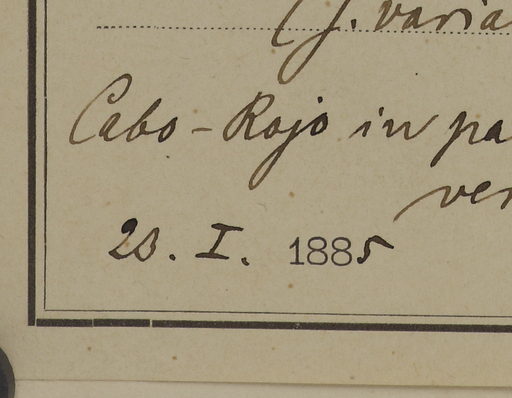 (f. varia
Cabo-Rojo in pa
ver
23. I. 1885